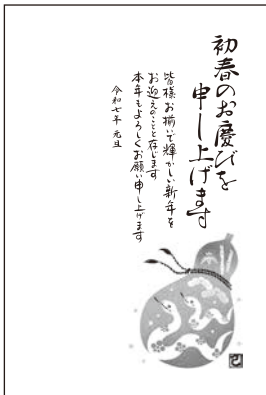 初春のお慶びを
申し上げます
皆様お揃いで輝かしい新年を
お迎えのことと存じます
本年もよろしくお願い申し上げます
令和七年 元旦
巳